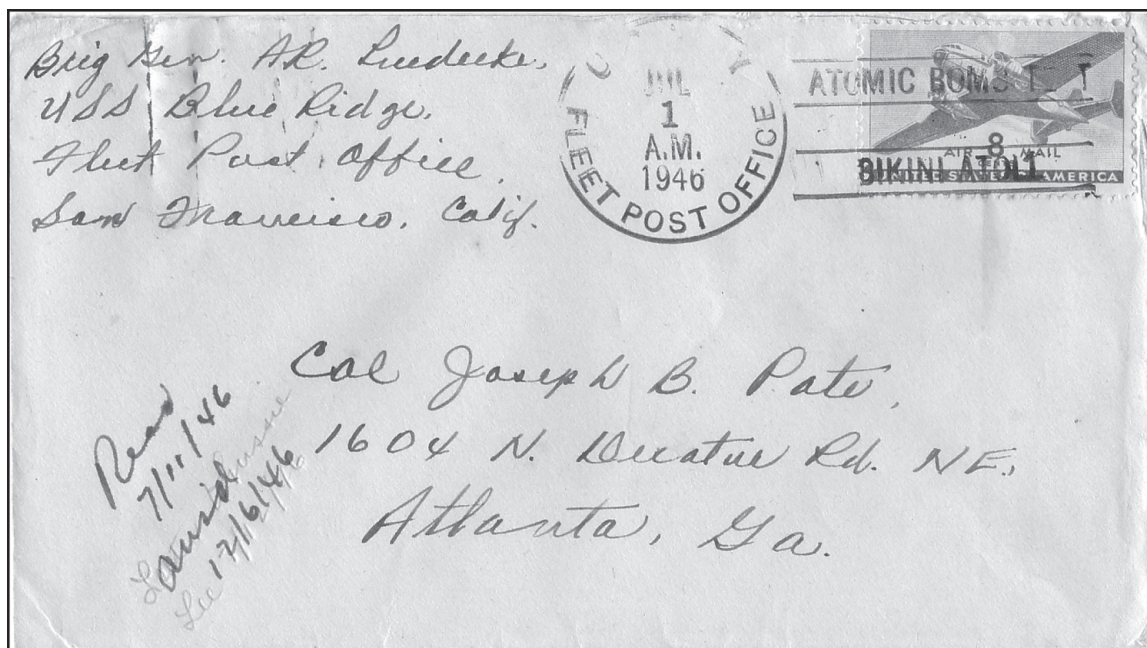 Brig Gen. A.R. Luedecke.
USS Blue Ridge.
Fleet Post Office,
San Francisco, Calif.
JUL
1
A.M.
1946
FLEET POST OFFICE
ATOMIC BOMB T
BIKINI ATOLL
AIR 8¢ MAIL
UNITED STATES OF AMERICA
Col Joseph B. Pate,
1604 N. Decatur Rd. NE.
Atlanta, Ga.
7/11/46
12/16/46